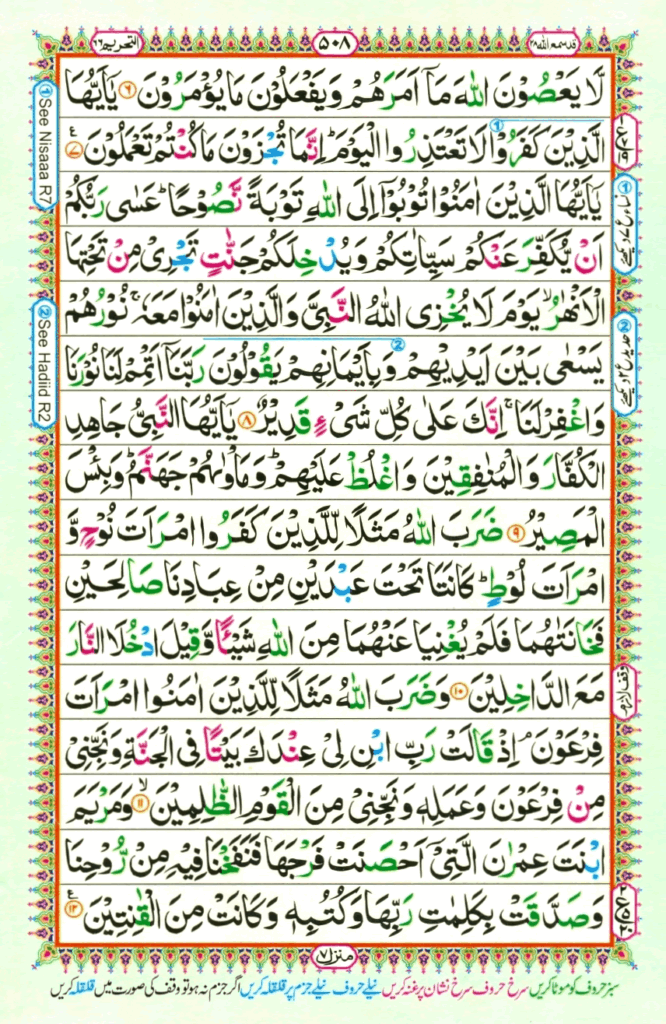 التحریم ٦٦
٥٠٨
قد سمع اللہ ٢٨
لَّا يَعْصُوْنَ اللّٰهَ مَآ اَمَرَهُمْ وَيَفْعَلُوْنَ مَا يُؤْمَرُوْنَ ٦ يٰٓاَيُّهَا
الَّذِيْنَ كَفَرُوْا لَا تَعْتَذِرُوا الْيَوْمَ ؕ اِنَّمَا تُجْزَوْنَ مَا كُنْتُمْ تَعْمَلُوْنَ ٧
يٰٓاَيُّهَا الَّذِيْنَ اٰمَنُوْا تُوْبُوْٓا اِلَى اللّٰهِ تَوْبَةً نَّصُوْحًا ؕ عَسٰى رَبُّكُمْ
اَنْ يُّكَفِّرَ عَنْكُمْ سَيِّاٰتِكُمْ وَيُدْخِلَكُمْ جَنّٰتٍ تَجْرِيْ مِنْ تَحْتِهَا
الْاَنْهٰرُ ۙ يَوْمَ لَا يُخْزِى اللّٰهُ النَّبِيَّ وَالَّذِيْنَ اٰمَنُوْا مَعَهٗ ۚ نُوْرُهُمْ
يَسْعٰى بَيْنَ اَيْدِيْهِمْ وَبِاَيْمَانِهِمْ يَقُوْلُوْنَ رَبَّنَآ اَتْمِمْ لَنَا نُوْرَنَا
وَاغْفِرْ لَنَا ۚ اِنَّكَ عَلٰى كُلِّ شَيْءٍ قَدِيْرٌ ٨ يٰٓاَيُّهَا النَّبِيُّ جَاهِدِ
الْكُفَّارَ وَالْمُنٰفِقِيْنَ وَاغْلُظْ عَلَيْهِمْ ؕ وَمَاْوٰىهُمْ جَهَنَّمُ ؕ وَبِئْسَ
الْمَصِيْرُ ٩ ضَرَبَ اللّٰهُ مَثَلًا لِّلَّذِيْنَ كَفَرُوا امْرَاَتَ نُوْحٍ وَّ
امْرَاَتَ لُوْطٍ ؕ كَانَتَا تَحْتَ عَبْدَيْنِ مِنْ عِبَادِنَا صَالِحَيْنِ
فَخَانَتٰهُمَا فَلَمْ يُغْنِيَا عَنْهُمَا مِنَ اللّٰهِ شَيْـًٔا وَّقِيْلَ ادْخُلَا النَّارَ
مَعَ الدّٰخِلِيْنَ ١٠ وَضَرَبَ اللّٰهُ مَثَلًا لِّلَّذِيْنَ اٰمَنُوا امْرَاَتَ
فِرْعَوْنَ ۘ اِذْ قَالَتْ رَبِّ ابْنِ لِيْ عِنْدَكَ بَيْتًا فِى الْجَنَّةِ وَنَجِّنِيْ
مِنْ فِرْعَوْنَ وَعَمَلِهٖ وَنَجِّنِيْ مِنَ الْقَوْمِ الظّٰلِمِيْنَ ١١ ۙ وَمَرْيَمَ
ابْنَتَ عِمْرٰنَ الَّتِيْٓ اَحْصَنَتْ فَرْجَهَا فَنَفَخْنَا فِيْهِ مِنْ رُّوْحِنَا
وَصَدَّقَتْ بِكَلِمٰتِ رَبِّهَا وَكُتُبِهٖ وَكَانَتْ مِنَ الْقٰنِتِيْنَ ١٢
منزل ٧
سبز حروف کو موٹا کریں سرخ حروف سرخ نشان پر غنہ کریں نیلے حروف نیلے جزم پر قلقلہ کریں اگر جزم نہ ہو تو وقف کی صورت میں قلقلہ کریں
① See Nisaaa R7
② See Hadiid R2
وقف لازم